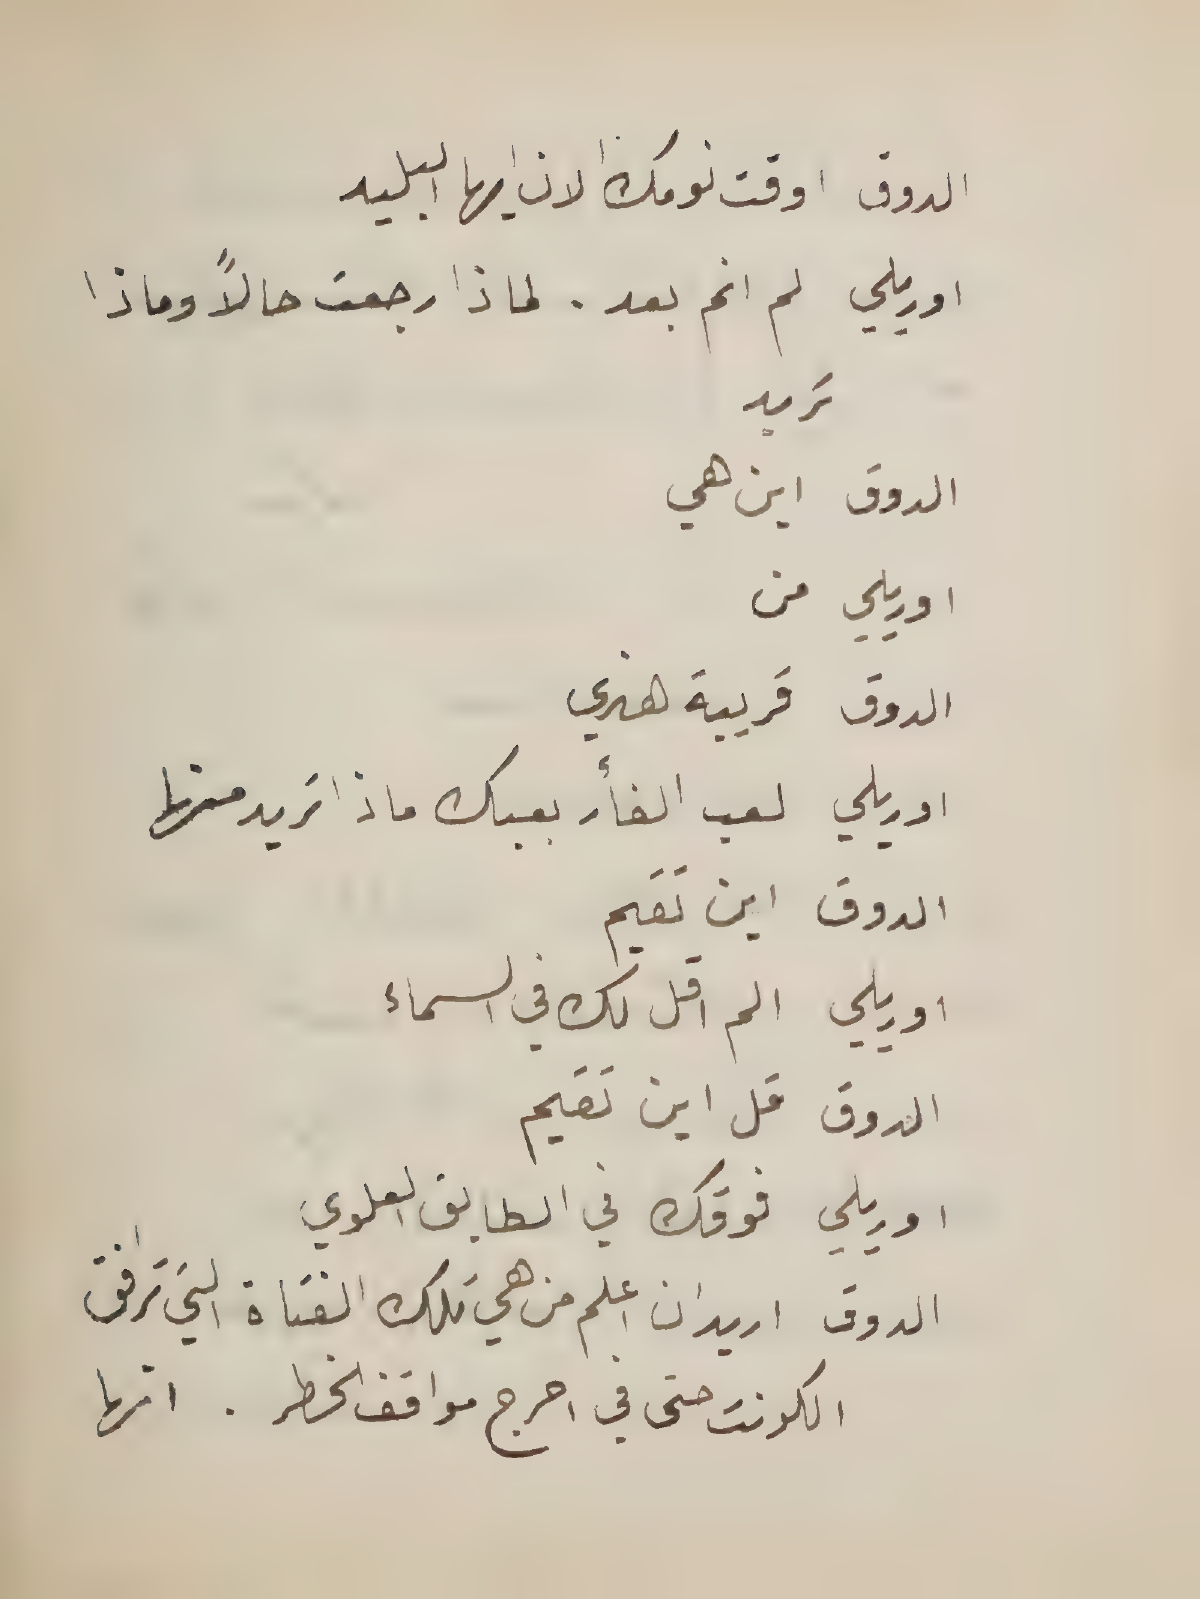 الدوق اوقت نومك الان ايها البليد
اوريلي لم انم بعد . لماذا رجعت حالاً وماذا
تريد
الدوق اين هي
اوريلي من
الدوق قريبة هنري
اوريلي لعب الفأر بعبك ماذا تريد منها
الدوق اين تقيم
اوريلي الم اقل لك في السماء
الدوق قل اين تقيم
اوريلي فوقك في الطابق العلوي
الدوق اريد ان اعلم من هي تلك الفتاة التي ترافق
الكونت حتى في احرج مواقف الخطر . انها